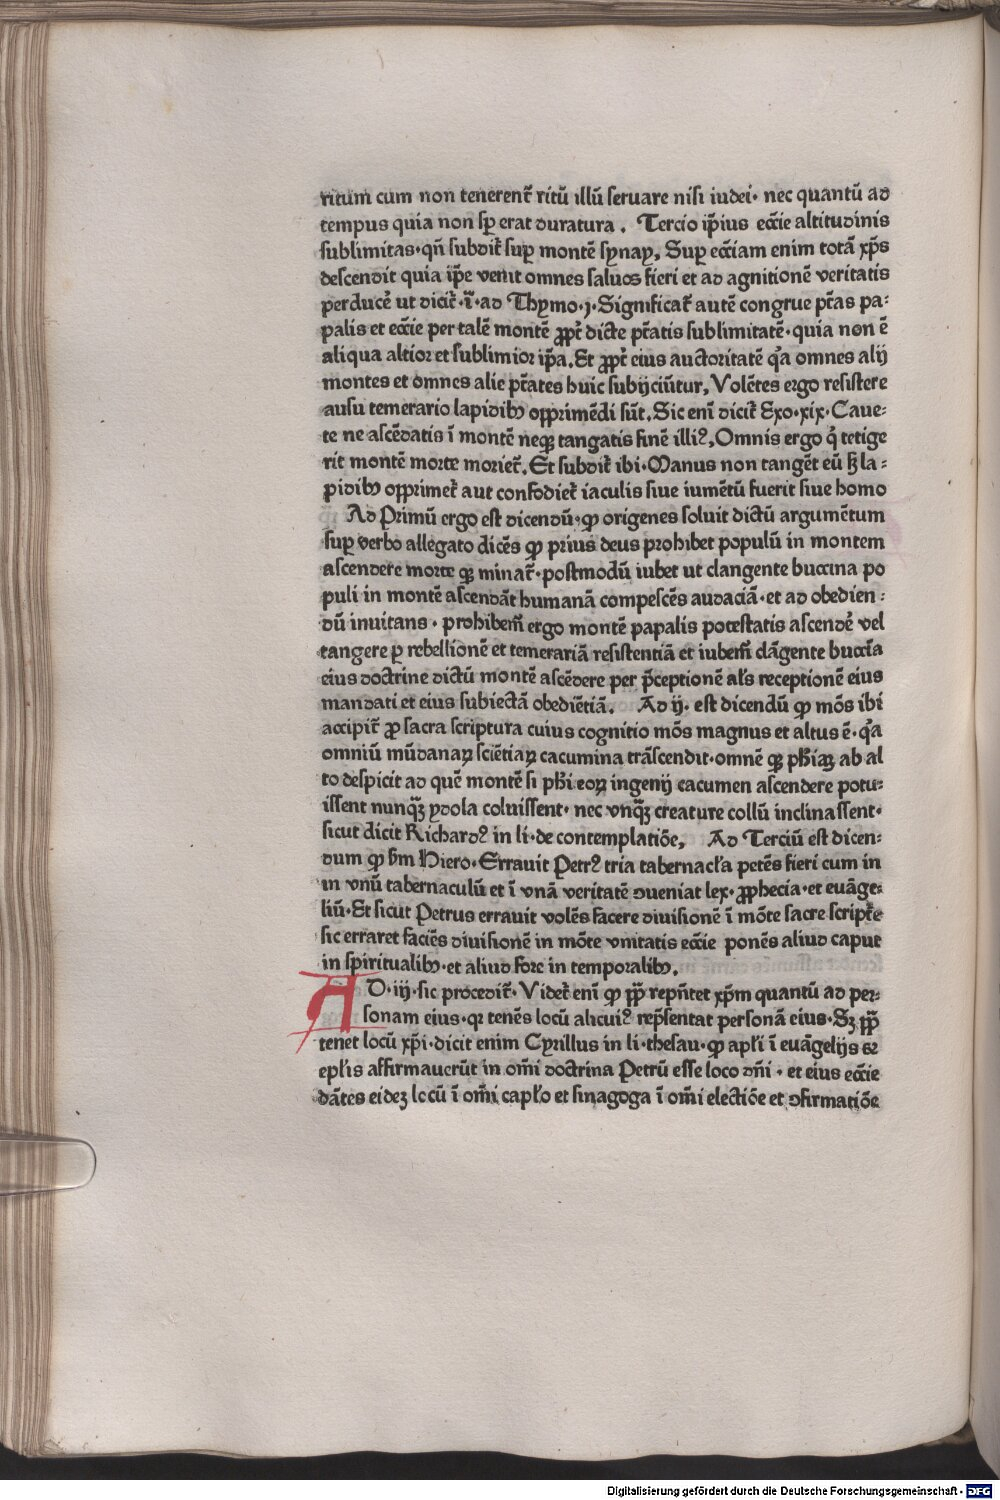 ritum cum non tenerent᷑ ritū illū seruare nisi iudei· nec quantū ad
tempus quia non sꝑ erat duratura. Tercio ip̄ius ecc̄ie altitudinis
sublimitas·qn̄ subdit᷑ suꝑ montē synay, Suꝑ ecc̄iam enim totā xp̄s
descendit quia ip̄e venit omnes saluos fieri et ad agnitionē veritatis
perducē ut dicit᷑·ī·ad Thymo·j·Significat᷑ autē congrue pt̄as pa-
palis et ecc̄ie per talē montē ꝓpt᷑ dicte pt̄atis sublimitatē·quia non ē
aliqua altior et sublimior ip̄a. Et ꝓpt᷑ eius auctoritatē qͣa omnes alij
montes et omnes alie pt̄ates huic subijciūtur, Volētes ergo resistere
ausu temerario lapidibꝫ opprimēdi sūt. Sic enī dicit᷑ Exo·xix·Caue-
te ne ascēdatis ī montē neqꝫ tangatis finē illiꝰ, Omnis ergo qͥ tetige
rit montē morte moriet᷑. Et subdit᷑ ibi·Manus non tangēt eū sꝫ la-
pidibꝫ opprimet᷑ aut confodiet᷑ iaculis siue iumētū fuerit siue homo
Ad Primū ergo est dicendū·ꝙ origenes soluit dictū argumētum
suꝑ verbo allegato dicēs ꝙ prius deus prohibet populū in montem
ascendere morte qꝫ minat᷑·postmodū iubet ut clangente buccina po
puli in montē ascendāt humanā compescēs audaciā·et ad obedien-
dū inuitans· prohibem᷑ ergo montē papalis potestatis ascendē vel
tangere ꝑ rebellionē et temerariā resistentiā et iubem᷑ clāgente buccīa
eius doctrine dictū montē ascēdere per p̄ceptionē al's receptionē eius
mandati et eius subiectā obediētiā. Ad ij. est dicendū ꝙ mōs ibi
accipit᷑ ꝓ sacra scriptura cuius cognitio mōs magnus et altus ē·qͣa
omniū mūdanaꝝ sciētiaꝝ cacumina trāscendit·omnē qꝫ ph̄iaꝫ ab al
to despicit ad quē montē si ph̄i eoꝝ ingenij cacumen ascendere potu-
issent nunqꝫ̄ ydola coluissent· nec vnqꝫ̄ creature collū inclinassent·
sicut dicit Richardꝰ in li·de contemplatiōe, Ad Terciū est dicen-
dum ꝙ s̄m Hiero·Errauit Petrꝰ tria tabernacl'a petēs fieri cum in
in vnū tabernaculū et ī vnā veritatē ꝯueniat lex·ꝓphecia·et euāge-
liū·Et sicut Petrus errauit volēs facere diuisionē ī mōte sacre script᷑e
sic erraret faciēs diuisionē in mōte vnitatis ecc̄ie ponēs aliud caput
in spiritualibꝫ·et aliud fore in temporalibꝫ.
AD·iij·sic procedit᷑·Videt᷑ enī ꝙ pp̄ repn̄tet xp̄m quantū ad per-
sonam eius·qꝛ tenēs locū alicuiꝰ rep̄sentat personā eius·Sꝫ pp̄
tenet locū xp̄i·dicit enim Cyrillus in li·thesau·ꝙ apl'i ī euāgelijs ⁊
epl'is affirmauerūt in om̄i doctrina Petrū esse loco dn̄i· et eius ecc̄ie
dātes eideꝫ locū ī om̄i capl'o et sinagoga ī om̄i electiōe et ꝯfirmatiōe
Digitalisierung gefördert durch die Deutsche Forschungsgemeinschaft · DFG